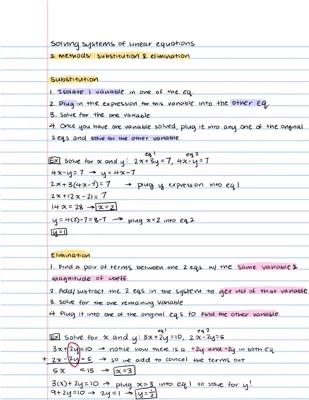 Solving systems of linear equations
2 methods: substitution & elimination
Substitution
1. Isolate 1 variable in one of the eq.
2. Plug in the expression for this variable into the other eq.
3. Solve for the one variable
4. Once you have one variable solved, plug it into any one of the original
2 eqs and solve for the other variable
Ex Solve for x and y: 2x+3y=7, 4x-y=7
eq 1 eq 2
4x-y=7 → y=4x-7
2x+3(4x-7)=7 → plug y expression into eq 1
2x+12x-21=7
14x=28 → x=2
y=4(2)-7=8-7 → plug x=2 into eq 2
y=1
Elimination
1. Find a pair of terms between the 2 eqs w/ the same variable &
magnitude of coeff.
2. Add/subtract the 2 eqs in the system to get rid of that variable
3. Solve for the one remaining variable
4. Plug it into one of the original eqs to find the other variable
eq 1 eq 2
Ex Solve for x and y: 3x+2y=10, 2x-2y=5
3x+2y=10 → notice how there is a +2y and -2y in both eq
+ 2x-2y=5 → so we add to cancel the terms out
5x =15 → x=3
3(3)+2y=10 → plug x=3 into eq 1 to solve for y!
9+2y=10 → 2y=1 → y=1/2